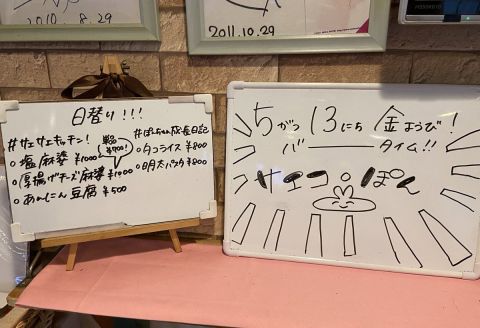 2010.8.29
2011.10.29
日替り!!!
#サエサエキッチン!
○塩麻婆 ¥1000
○厚揚げチーズ麻婆 ¥1000
○あんにん豆腐 ¥500
単品
¥700!
#ぽーちゃん成長日記
○タコライス ¥800
○明太パスタ ¥800
5がつ13にち 金ようび!
バータイム!!
サエコ。ぽん